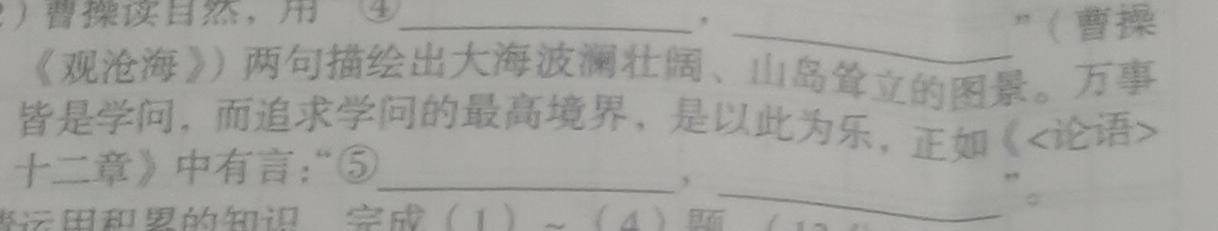 ）曹操读自然，用“④____________，____________”（曹操
《观沧海》）两句描绘出大海波澜壮阔、山岛耸立的图景。万事
皆是学问，而追求学问的最高境界，是以此为乐，正如《<论语>
十二章》中有言：“⑤____________，____________”。
运用积累的知识，完成（1）~（4）题